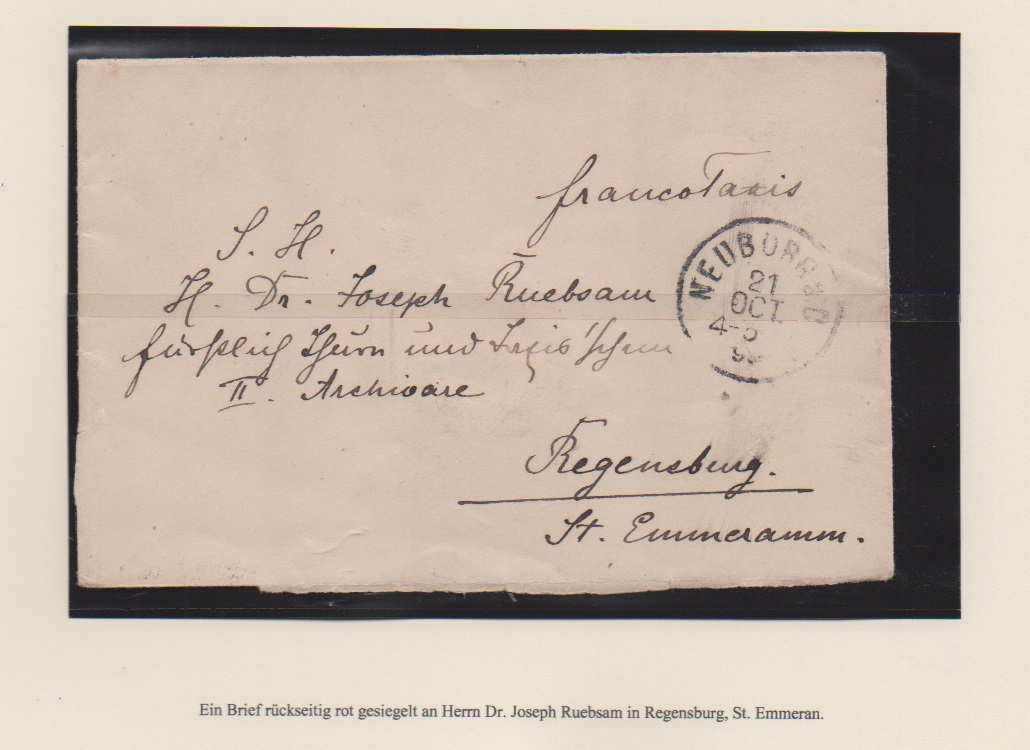 franco Taxis
S. H.
H. Dr. Joseph Ruebsam
fürstlich Thurn und Taxis'schen
II. Archivare
Regensburg.
St. Emmeramm.
NEUBURG a.D
21
OCT.
4-5
Ein Brief rückseitig rot gesiegelt an Herrn Dr. Joseph Ruebsam in Regensburg, St. Emmeran.